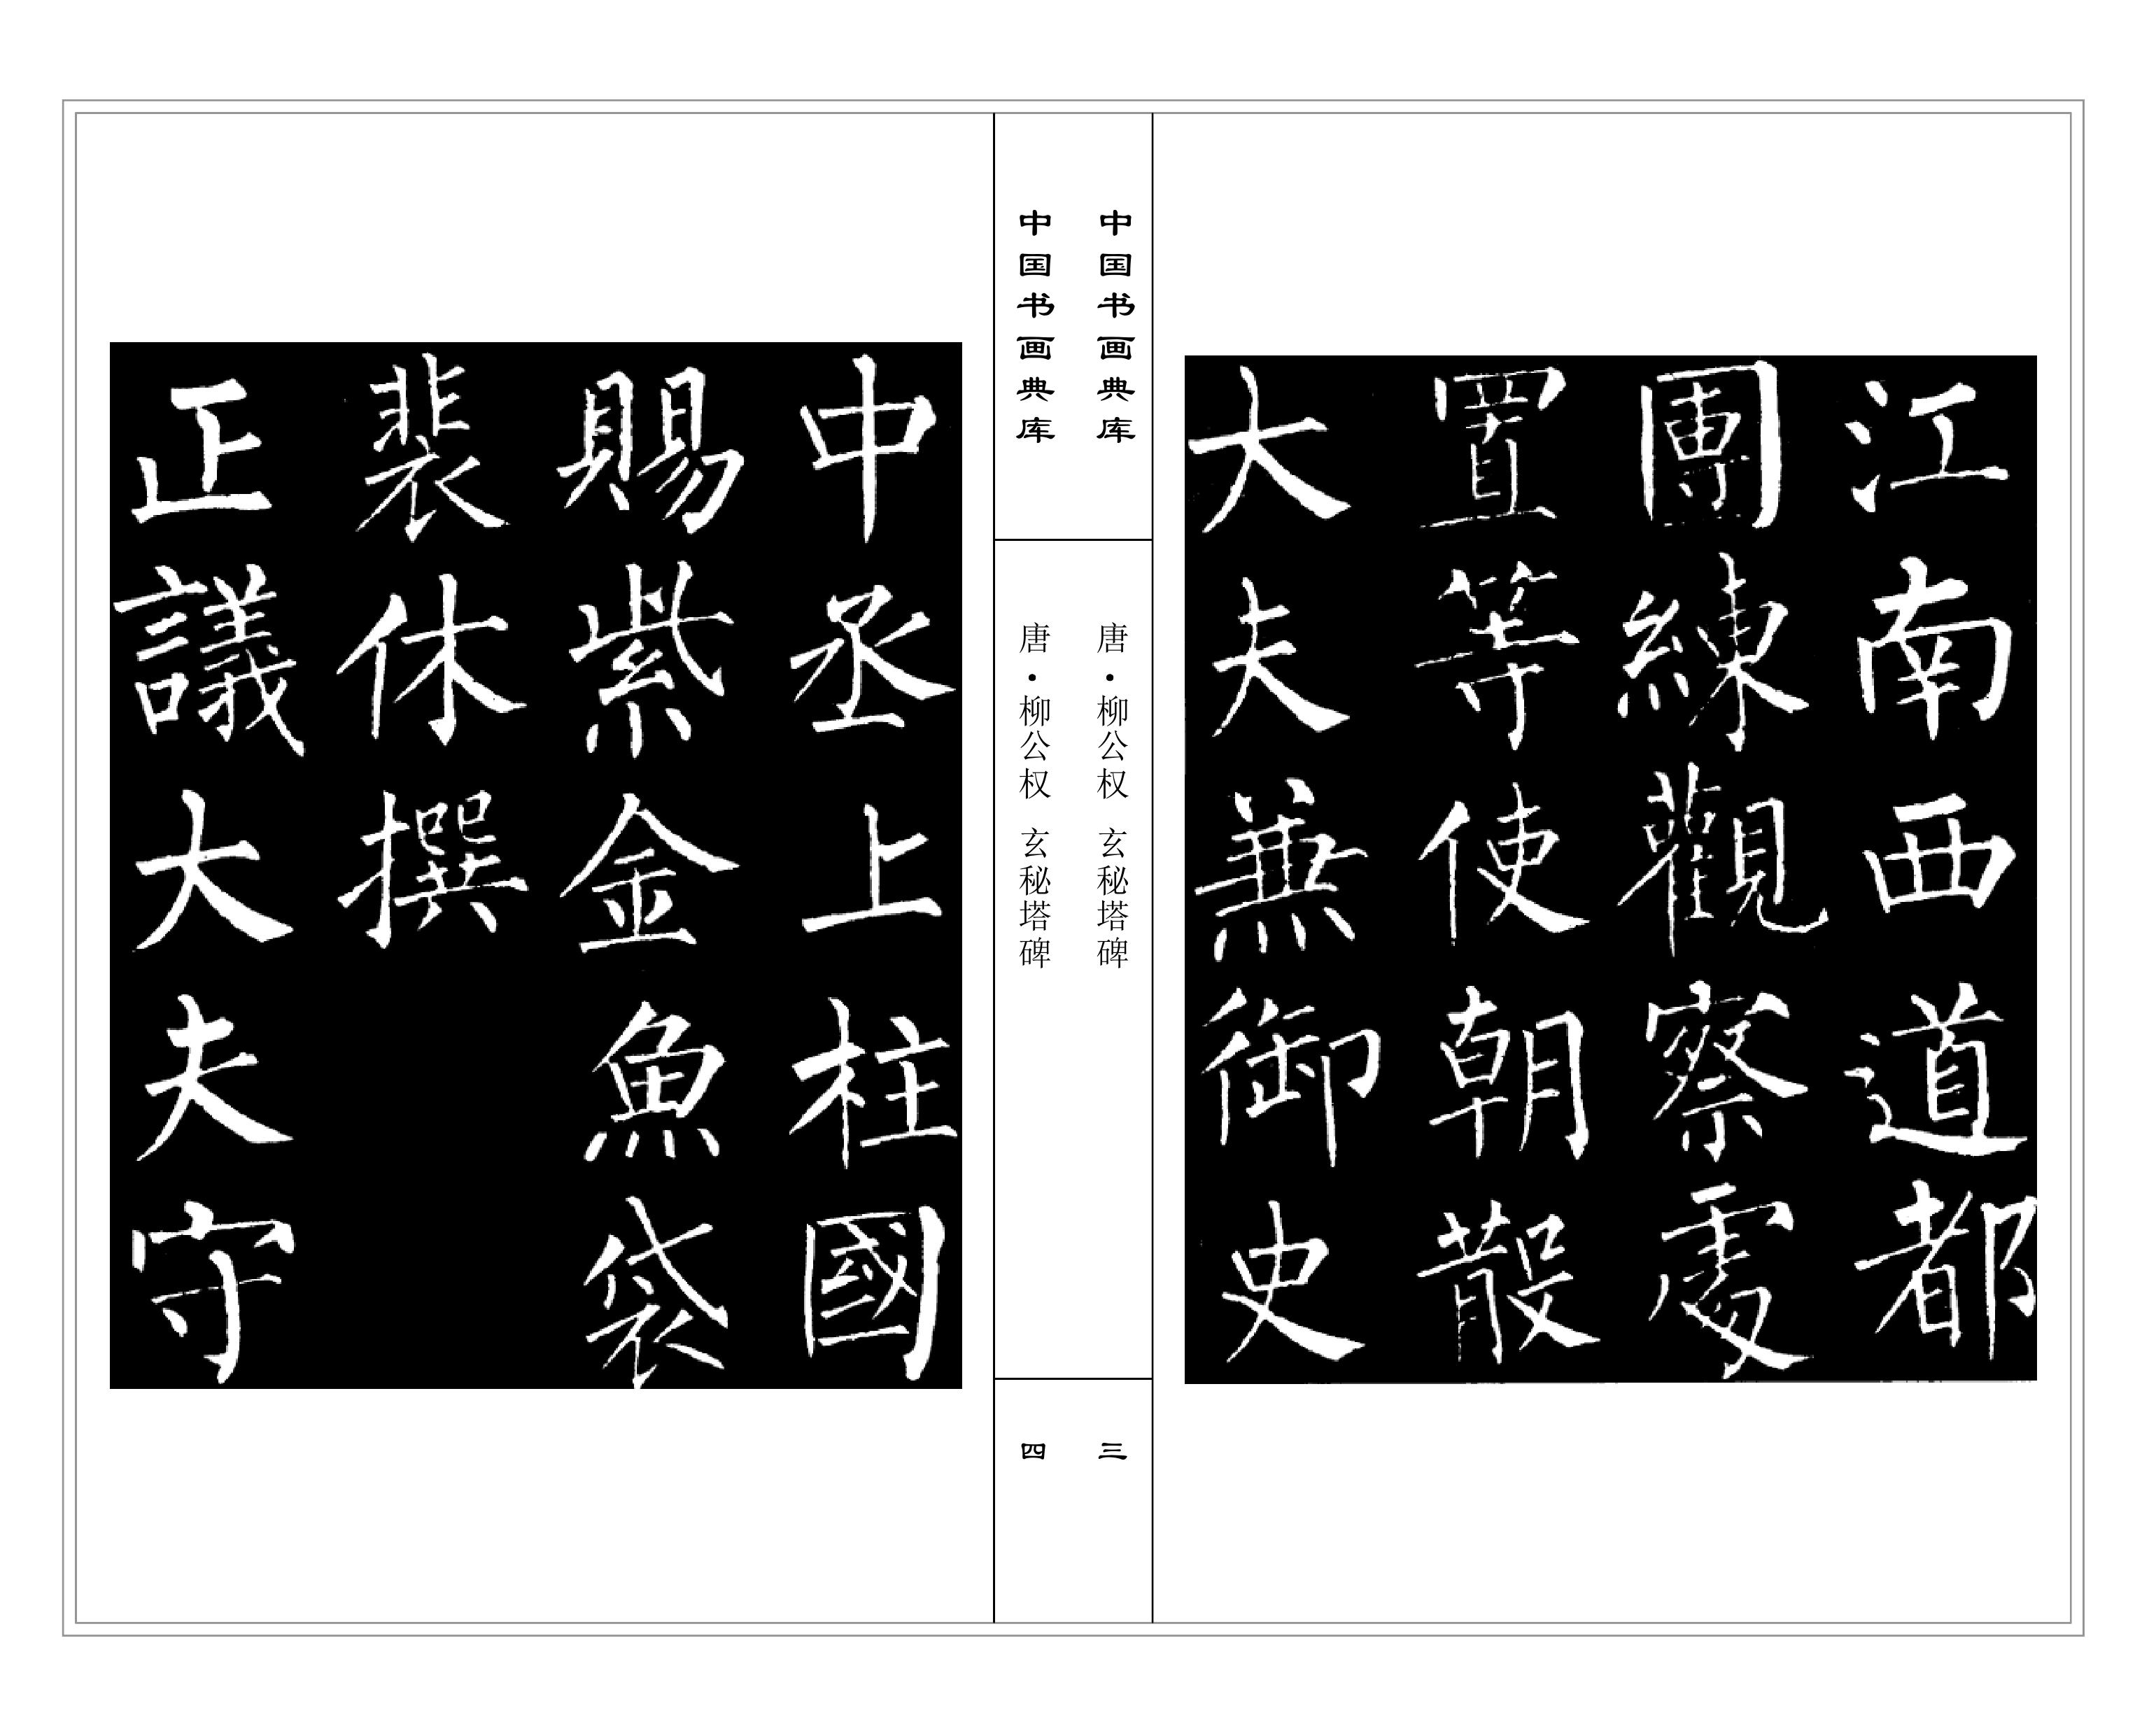 江南西道都
團練觀察處
置等使朝散
大夫兼御史
中国书画典库
唐·柳公权 玄秘塔碑
三
中国书画典库
唐·柳公权 玄秘塔碑
四
中丞上柱國
賜紫金魚袋
裴休撰
正議大夫守